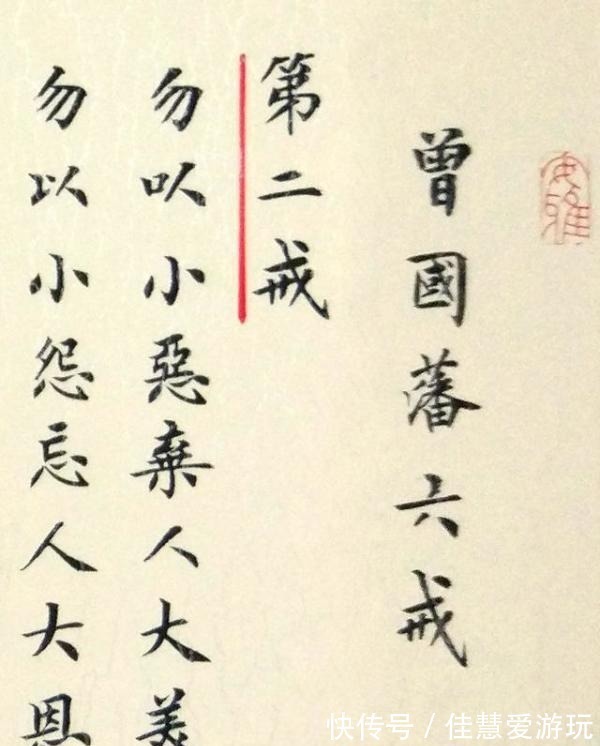 安雅
曾國藩六戒
第二戒
勿以小惡棄人大美
勿以小怨忘人大恩
快传号 / 佳慧爱游玩